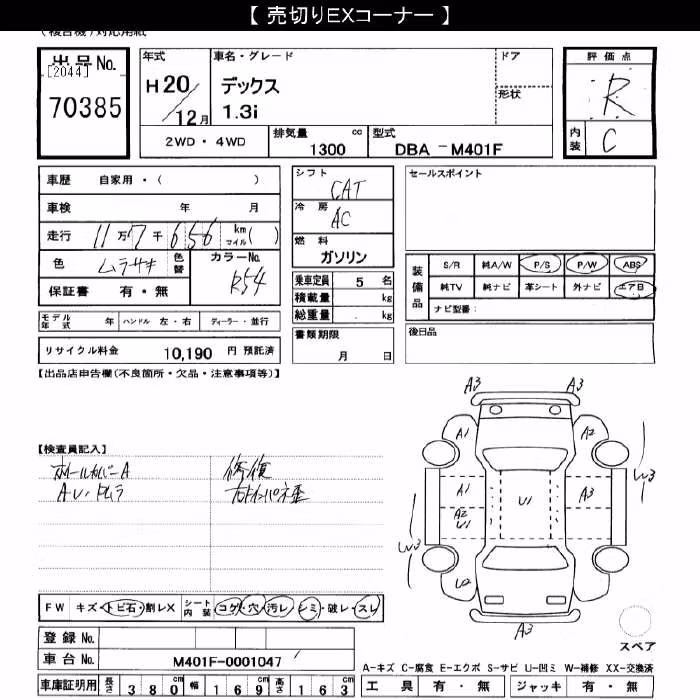 【 売切りEXコーナー 】
(複合機)対応用紙
出品No.
[2044]
70385
年式
H20/12月
車名・グレード
デックス
1.3i
ドア
形状
評価点
R
内装
C
2WD・4WD
排気量 cc
1300
型式
DBA － M401F
車歴 自家用・( )
車検 年 月
走行 11万7千656 km マイル( )
色 ムラサキ 色替 カラーNo.
R54
保証書 有・無
シフト
CAT
冷房
AC
燃料
ガソリン
乗車定員 5 名
積載量 kg
総重量 kg
書類期限
月 日
セールスポイント
装備品
S/R 純A/W P/S P/W ABS
純TV 純ナビ 革シート 外ナビ エアB
ナビ型番:
後日品
モデル年式 年 ハンドル 左・右 ディーラー・並行
リサイクル料金 10,190 円 預託済
【出品店申告欄(不良箇所・欠品・注意事項等)】
【検査員記入】
ホイールカバーA 修復
AU・トムラ
A3 A3
A1 A2
A1 U1 A3
A2
U1
W3
W3
U2
A3
スペア
FW キズ・トビ石・割レX シート内装 コゲ・穴・汚レ・シミ・破レ・スレ
登録No.
車台No. M401F-0001047
車庫証明用 長さ 380cm 幅 169cm 高さ 163cm
A-キズ C-腐食 E-エクボ S-サビ U-凹ミ W-補修 XX-交換済
工具 有・無 ジャッキ 有・無